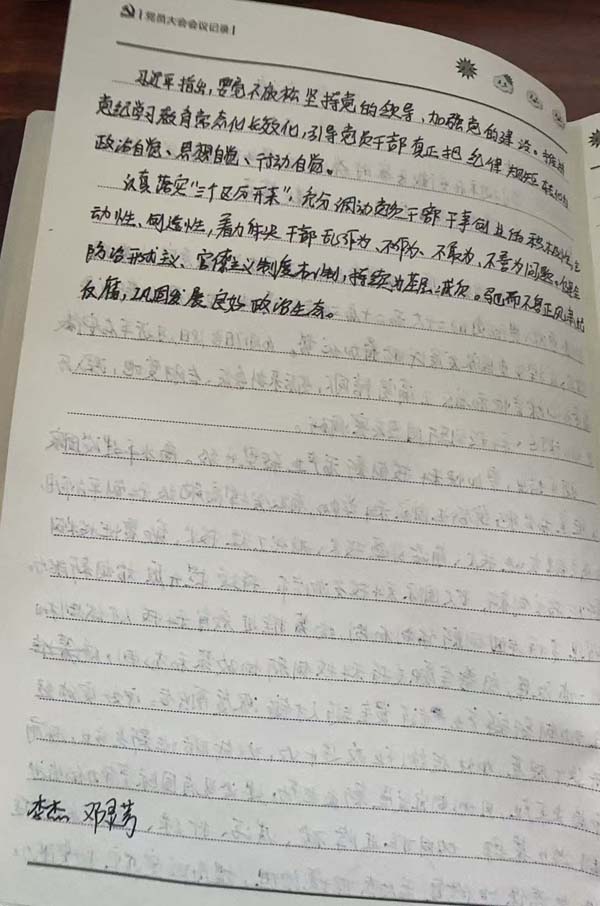 党员大会会议记录
习近平指出，要毫不放松坚持党的领导、加强党的建设。推动
党纪学习教育常态化长效化，引导党员干部真正把纪律规矩转化为
政治自觉、思想自觉、行动自觉。
认真落实"三个区分开来"，充分调动党员干部干事创业的积极性、主
动性、创造性，着力解决干部乱作为、不作为、不敢为、不善为问题。健全
防治形式主义、官僚主义制度机制，持续为基层减负。驰而不息正风肃纪
反腐，巩固发展良好政治生态。
李杰 邓灵芳